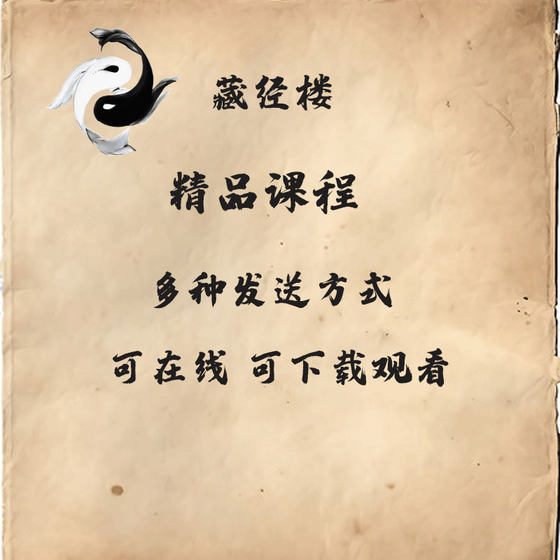 藏经楼
精品课程
多种发送方式
可在线 可下载观看